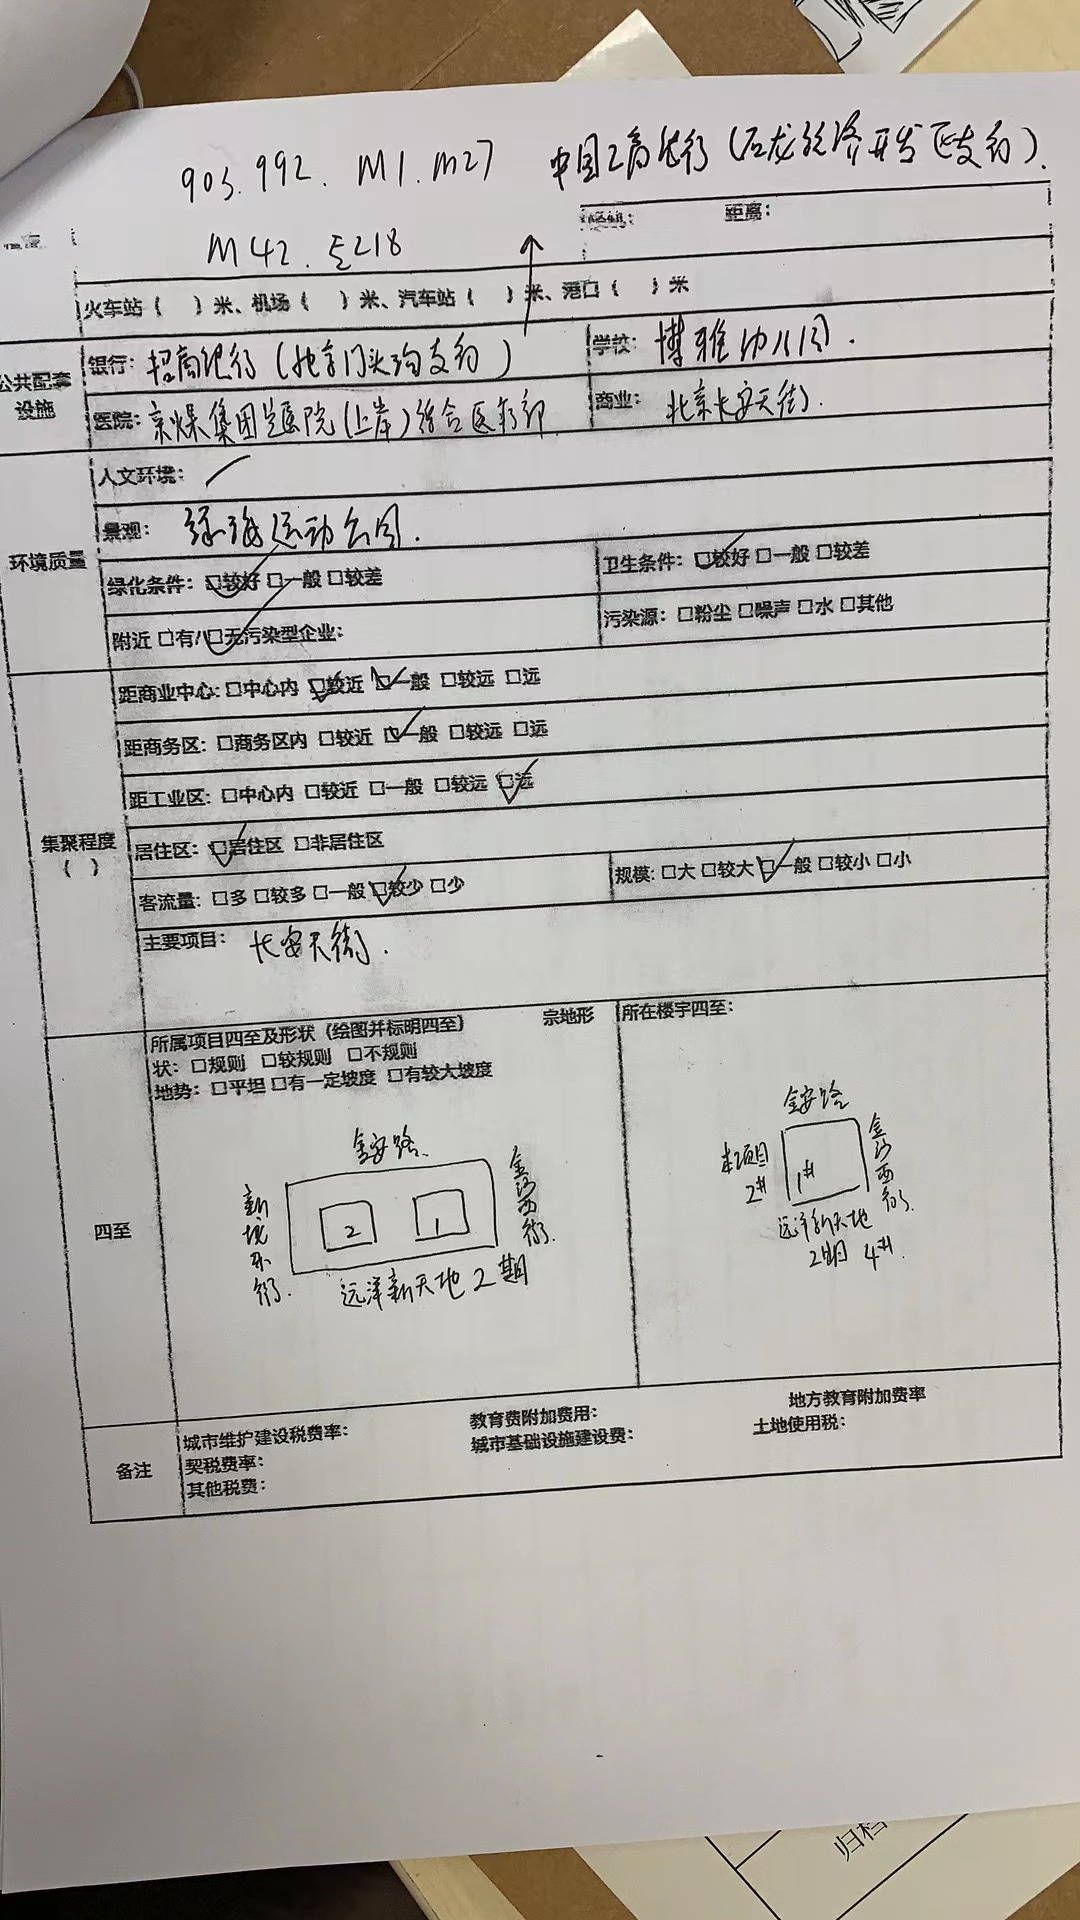 903.992. M1.M27 中国工商银行(石龙经济开发区支行).
M42.专218
距离:
火车站( )米、机场( )米、汽车站( )米、港口( )米
公共配套设施
银行: 招商银行(北京门头沟支行) 学校: 博雅幼儿园.
医院: 京煤集团总医院(上岸)综合医疗部 商业: 北京长安天街.
环境质量
人文环境: /
景观: 绿海运动公园.
绿化条件: ☑较好 □一般 □较差 卫生条件: ☑较好 □一般 □较差
附近 □有/☑无污染型企业: 污染源: □粉尘 □噪声 □水 □其他
集聚程度
( )
距商业中心: □中心内 ☑较近 ☑一般 □较远 □远
距商务区: □商务区内 □较近 ☑一般 □较远 □远
距工业区: □中心内 □较近 □一般 □较远 ☑远
居住区: ☑居住区 □非居住区
客流量: □多 □较多 □一般 ☑较少 □少 规模: □大 □较大 ☑一般 □较小 □小
主要项目: 长安天街.
四至
所属项目四至及形状(绘图并标明四至) 宗地形
状: □规则 □较规则 □不规则
地势: □平坦 □有一定坡度 □有较大坡度
金安路.
新城东街.
2
1
金沙西街.
远洋新天地2期
所在楼宇四至:
金安路
本项目2#
1#
金沙西街.
远洋新天地
2期 4#.
备注
城市维护建设税费率: 教育费附加费用: 地方教育附加费率
契税费率: 城市基础设施建设费: 土地使用税:
其他税费:
归档